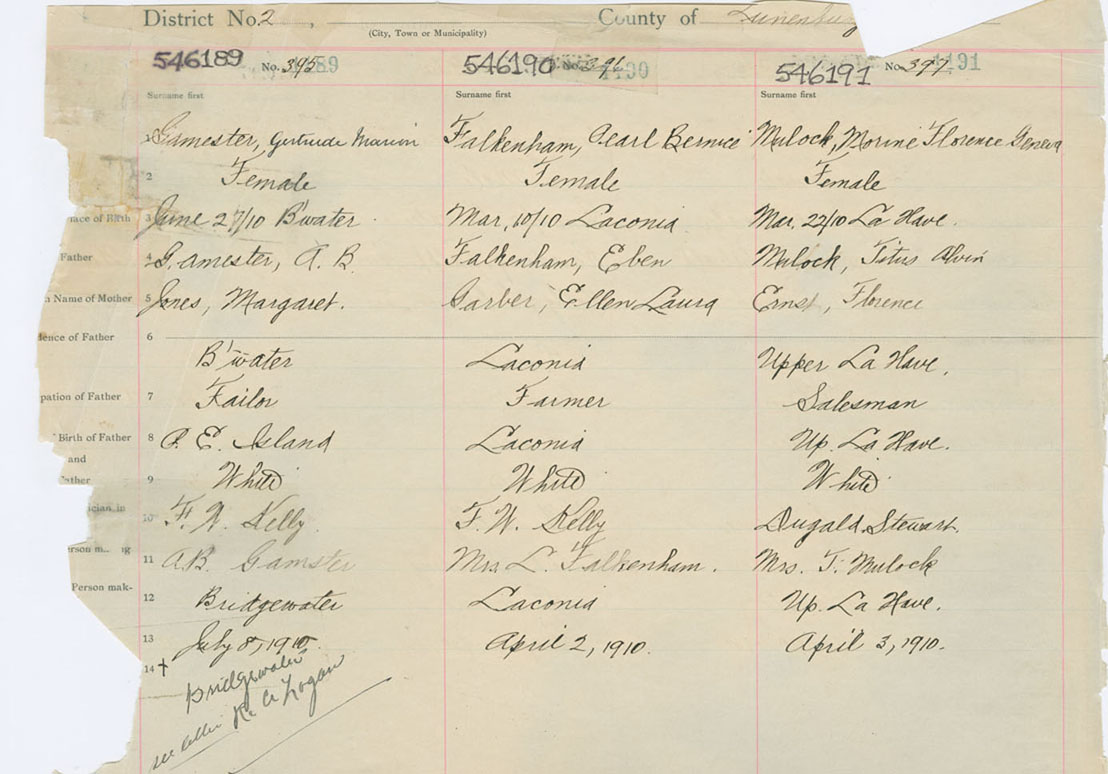 District No. 2 , County of Lunenburg
(City, Town or Municipality)
546189 No. 395 546190 No. 396 546191 No. 397
Surname first Surname first Surname first
1 Gamester, Gertrude Marion Falkenham, Pearl Bernice Mulock, Morine Florence Geneva
2 Female Female Female
lace of Birth 3 June 27/10 B'water Mar, 10/10 Laconia Mar. 22/10 La Have.
Father 4 Gamester, A. B. Falkenham, Eben Mulock, Titus Alvin
n Name of Mother 5 Jones, Margaret. Garber, Ellen Laura Ernst, Florence
dence of Father 6
B'water Laconia Upper La Have.
pation of Father 7 Tailor Farmer Salesman
Birth of Father 8 P. E. Island Laconia Up. La Have.
and
9 White White White
ician in 10 F. W. Kelly F. W. Kelly Dugald Stewart.
erson m 11 A.B. Gamster Mrs L. Falkenham. Mrs. T. Mulock
Person mak-
12 Bridgewater Laconia Up. La Have.
13 July 8, 1910. April 2, 1910. April 3, 1910.
14 x
Bridgewater
R. A. Logan